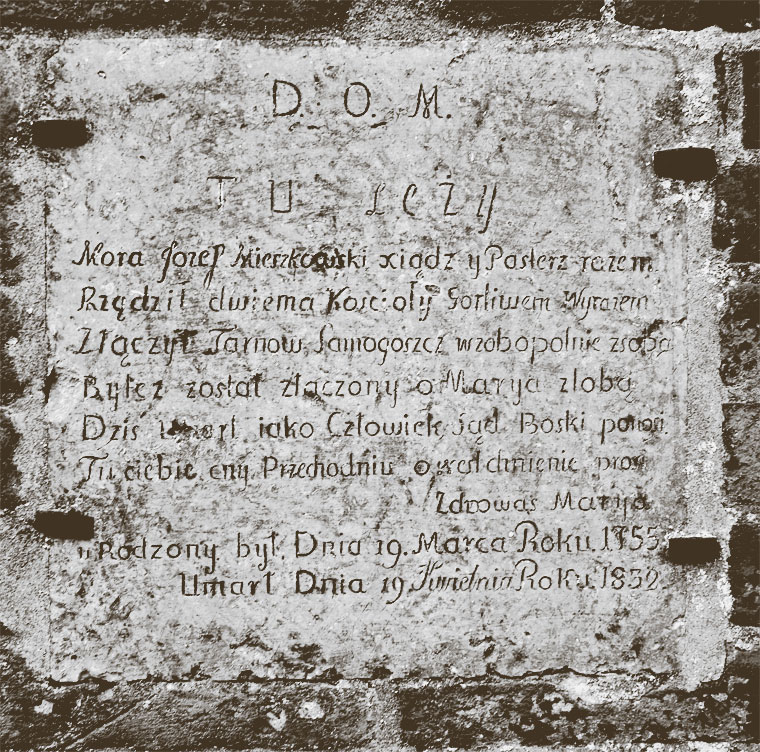 D. O. M.
TU LEŻY
Mora Jozef Mierzkowski xiądz y Pasterz razem
Rządził dwiema Kościoły Gorliwem Wyrazem
Złączył Tarnow, Samogoszcz wzobopolnie zsobą
Byłcz został złączony o Marya ztobą
Dziś umarł iako Człowiek sąd Boski ponosi
Tu ciebie cny Przechodniu o westchnienie prosi
Zdrowaś Marya
Urodzony był. Dnia 19. Marca Roku. 1755
Umarł Dnia 19 Kwietnia Roku. 1832.